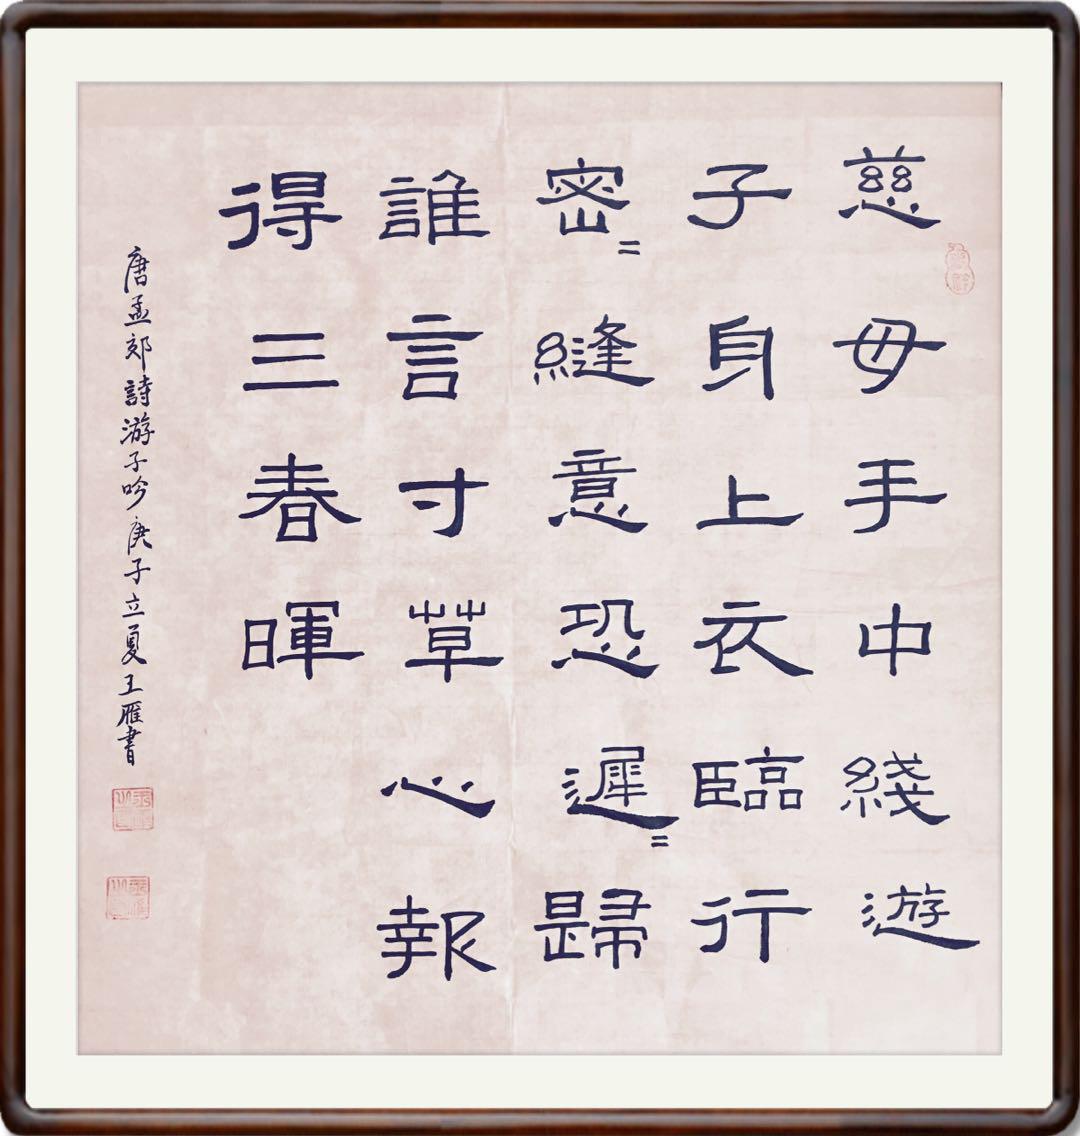 慈母手中綫遊
子身上衣臨行
密=縫意恐遲=歸
誰言寸草心報
得三春暉
唐孟郊詩游子吟庚子立夏王雁書